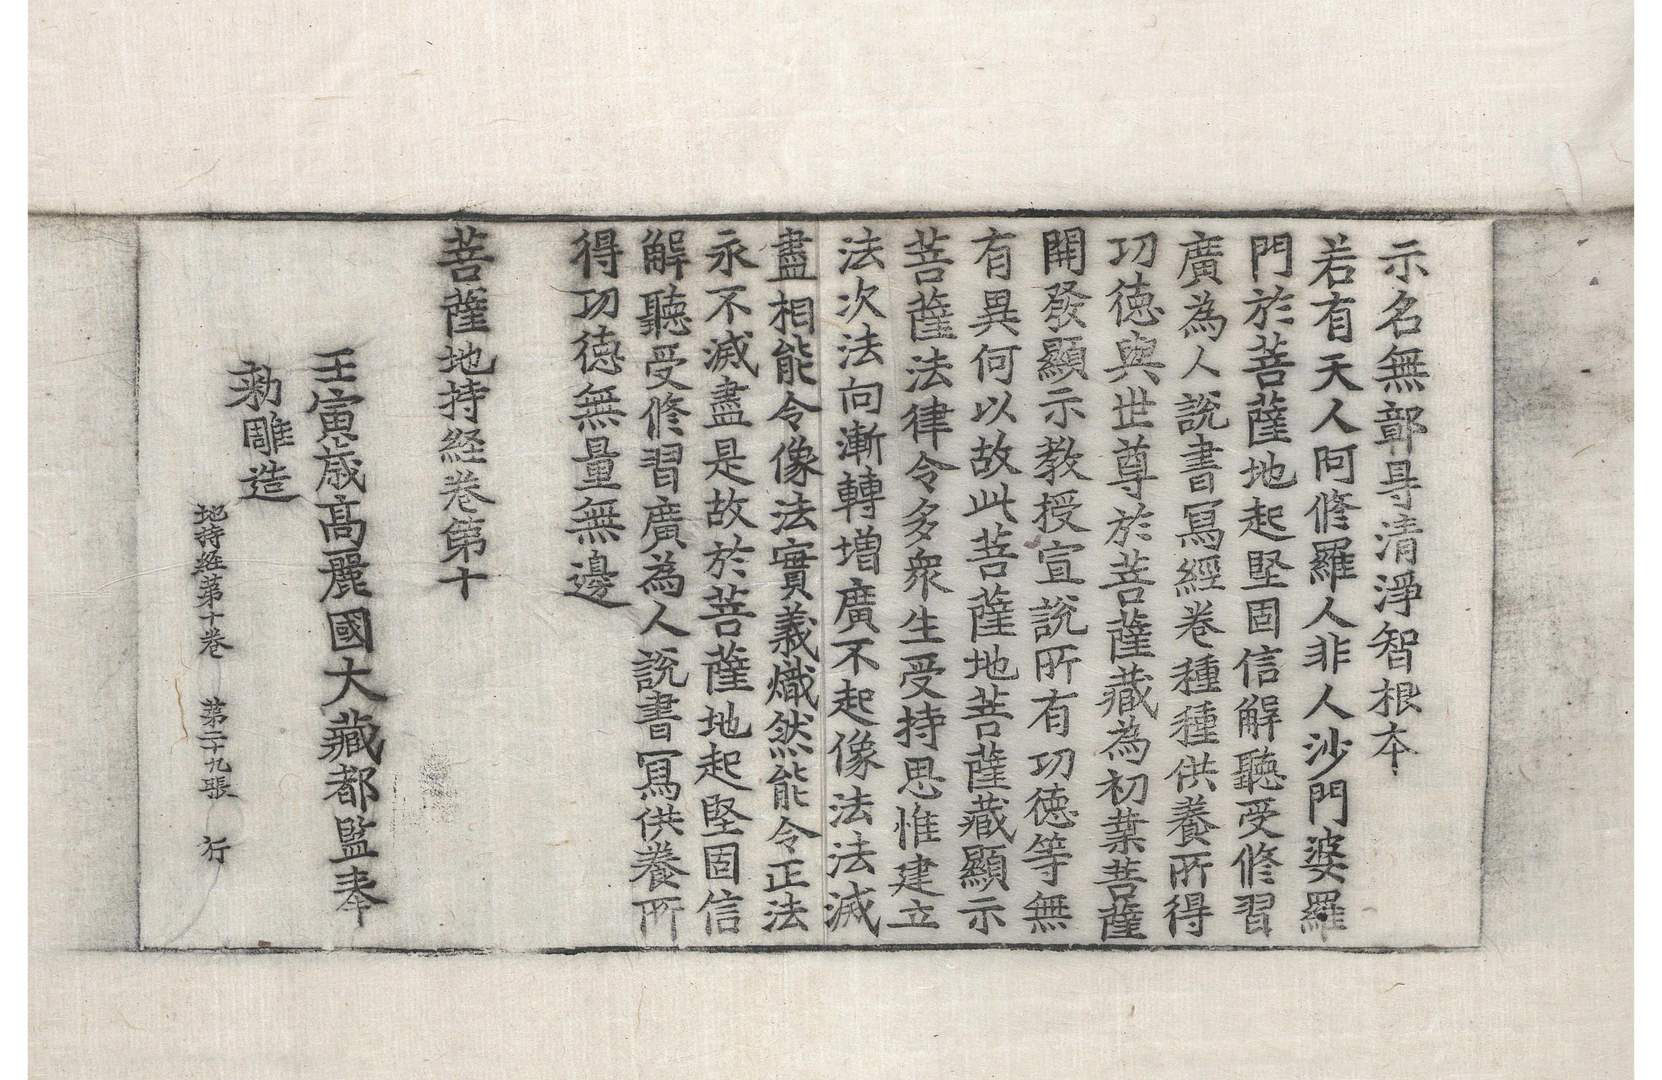 示名無鄣㝵清淨智根夲
若有天人阿修羅人非人沙門婆羅
門於菩薩地起堅固信解聽受修習
廣為人說書寫經卷種種供養所得
功德與世尊於菩薩藏為初業菩薩
開發顯示教授宣說所有功德等無
有異何以故此菩薩地菩薩藏顯示
菩薩法律令多衆生受持思惟建立
法次法向漸轉增廣不起像法法滅
盡相能令像法實義熾然能令正法
永不滅盡是故於菩薩地起堅固信
解聽受修習廣為人說書寫供養所
得功德無量無邊
菩薩地持経卷第十
壬寅歲高麗國大藏都監奉
勑雕造
地持経第十卷　第二十九張　行